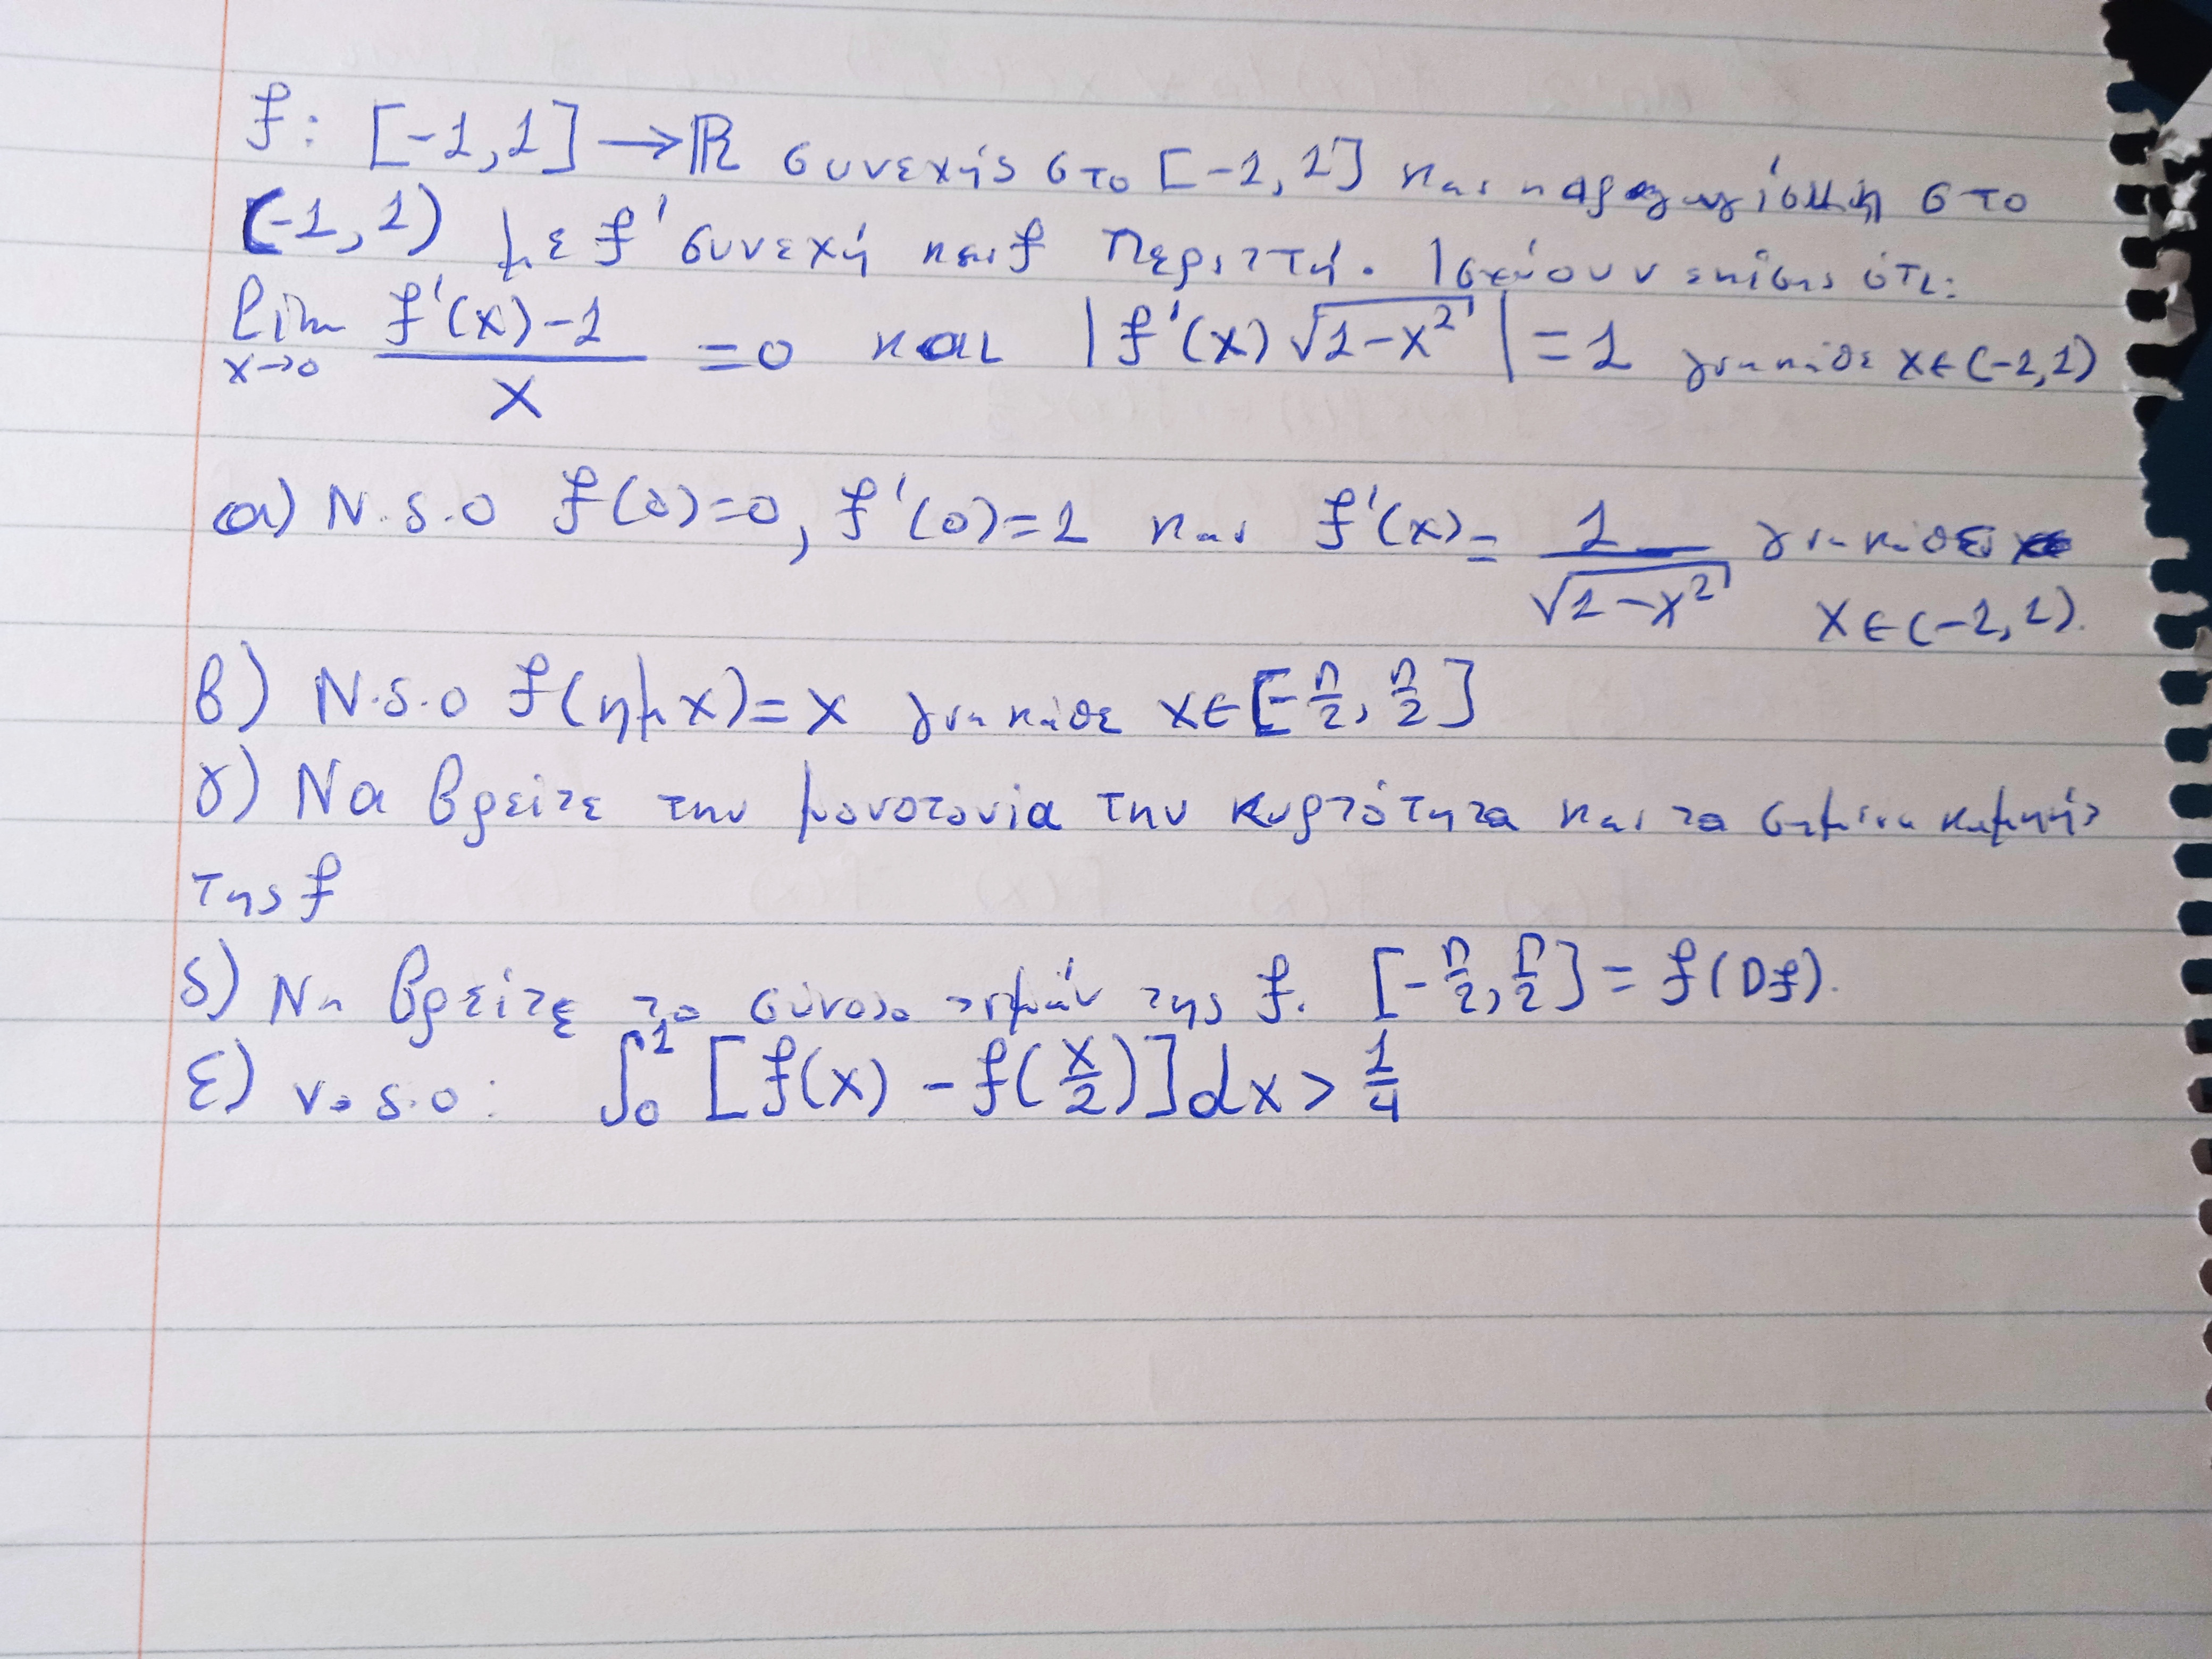 f: [-1,1] → ℝ συνεχής στο [-1,1] και παραγωγίσιμη στο
(-1,1) με f' συνεχή και f περιττή. Ισχύουν επίσης ότι:
lim x→0 (f'(x)-1)/x = 0 και |f'(x)√(1-x²)| = 1 για κάθε x∈(-1,1)
α) Ν.δ.ο f(0)=0, f'(0)=1 και f'(x) = 1/√(1-x²) για κάθε
x∈(-1,1).
β) Ν.δ.ο f(ημx)=x για κάθε x∈[-π/2, π/2]
γ) Να βρείτε την μονοτονία την κυρτότητα και τα σημεία καμπής
της f
δ) Να βρείτε το σύνολο τιμών της f. [-π/2, π/2] = f(Df).
ε) ν.δ.ο: ∫₀¹ [f(x) - f(x/2)]dx > 1/4